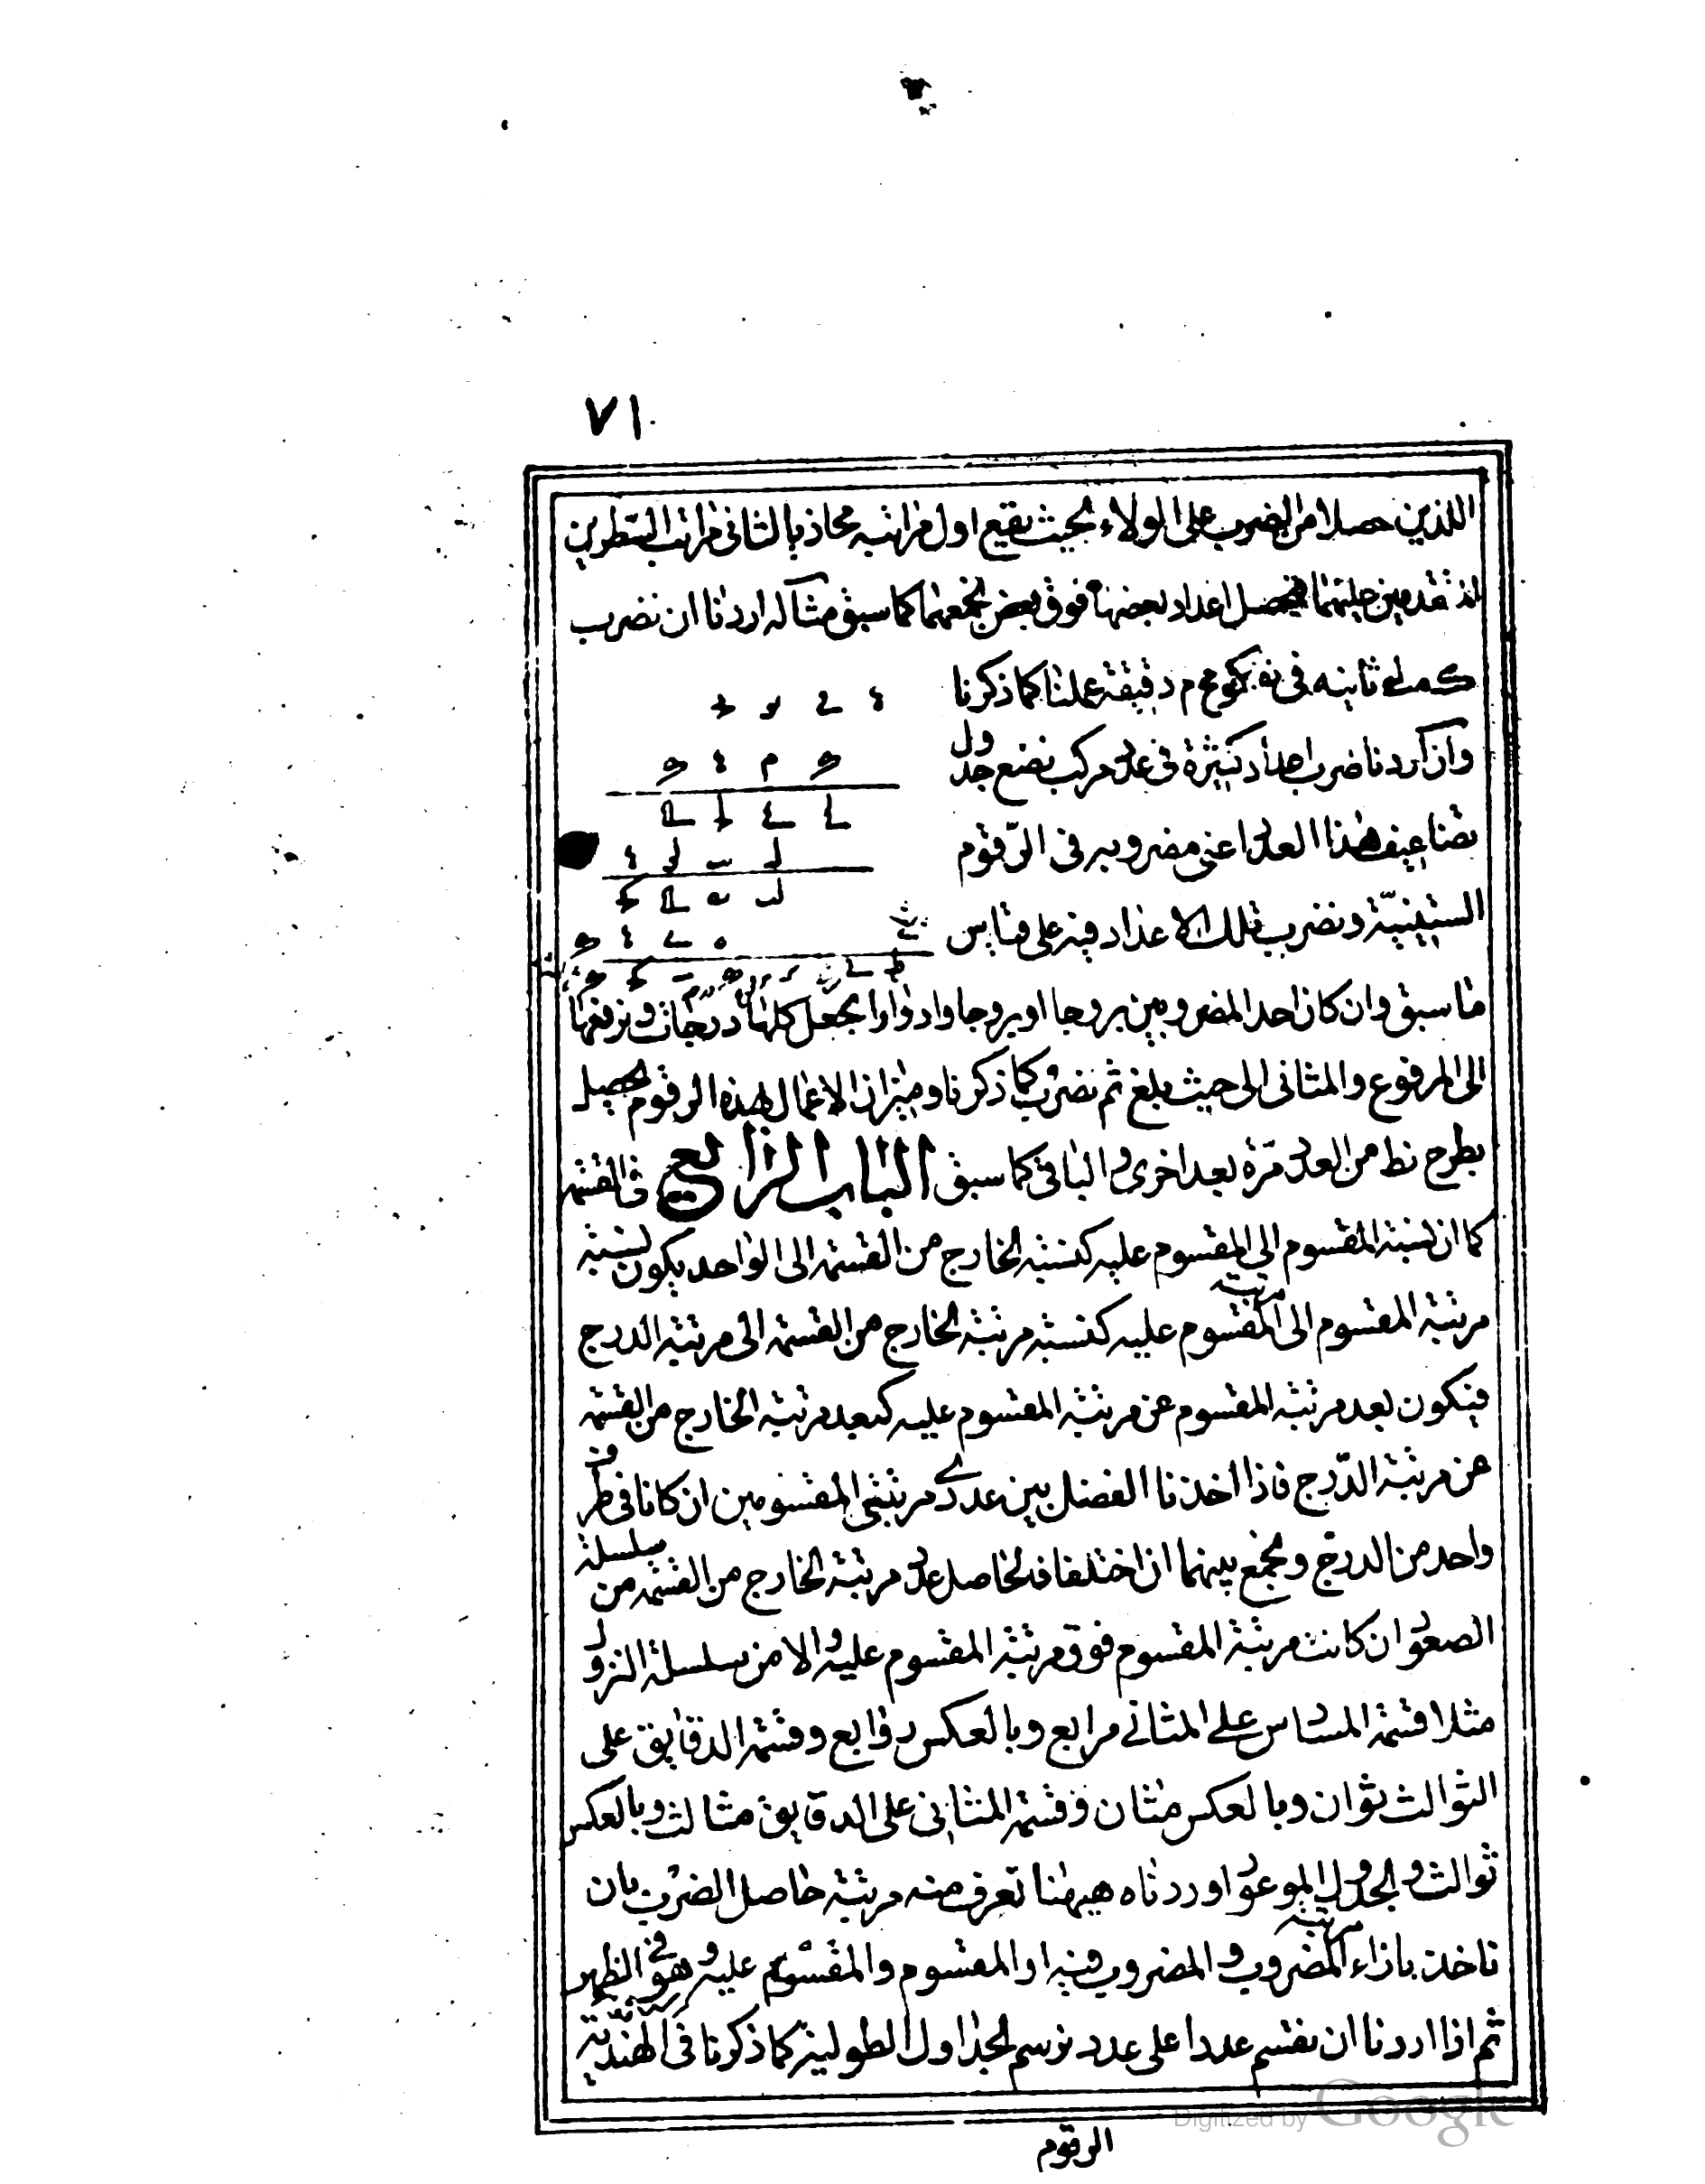 ٧١
اللذين حصلا من الضرب على الولاء بحيث يقع اول مراتبه محاذيا لثاني مراتب السطرين
المتقدمين فيحصل اعداد بعضها فوق بعض نجمعها كما سبق مثاله اردنا ان نضرب
ثانيه في دقيقة عملنا كما ذكرنا
وان اردنا ضرب اعداد كثيرة في عدد مركب نضع جدول
تضاعيف هذا العدد اعني مضروبه في الرقوم
الستينيّة ونضرب تلك الاعداد فيه على قياس
ما سبق وان كان احد المضروبين بروجا او بروجا وادوارا نجعل كلها درجات ونرفعها
الى المرفوع والمثاني الى حيث بلغ ثم نضرب كما ذكرنا وميزان الاعمال بهذه الرقوم يحصل
بطرح نط من العدد مرّة بعد اخرى والباقي كما سبق الباب الرابع في القسمة
كما ان نسبة المقسوم الى المقسوم عليه كنسبة الخارج من القسمة الى الواحد يكون نسبة
مرتبة المقسوم الى مرتبة المقسوم عليه كنسبة مرتبة الخارج من القسمة الى مرتبة الدرج
فيكون بعد مرتبة المقسوم عن مرتبة المقسوم عليه كبعد مرتبة الخارج من القسمة
عن مرتبة الدّرج فاذا اخذنا الفضل بين عددي مرتبتي المقسومين ان كانا في طرف
واحد من الدرج ونجمع بينهما ان اختلفا فالحاصل عدد مرتبة الخارج من القسمة من سلسلة
الصعود ان كانت مرتبة المقسوم فوق مرتبة المقسوم عليه والا من سلسلة النزول
مثلا قسمة المسادس على المثاني مرابع وبالعكس روابع وقسمة الدقايق على
الثوالث ثوان وبالعكس مثان وقسمة المثاني على الدقايق مثالث وبالعكس
ثوالث والجدول الموعود اوردناه هيهنا تعرف منه مرتبة حاصل الضرب بان
ناخذ بازاء مرتبة المضروب والمضروب فيه او المقسوم والمقسوم عليه وهو في الظهر
ثم اذا اردنا ان نقسم عددا على عدد نرسم الجداول الطولية كما ذكرنا في الهنديّة
الرقوم
Digitized by Google